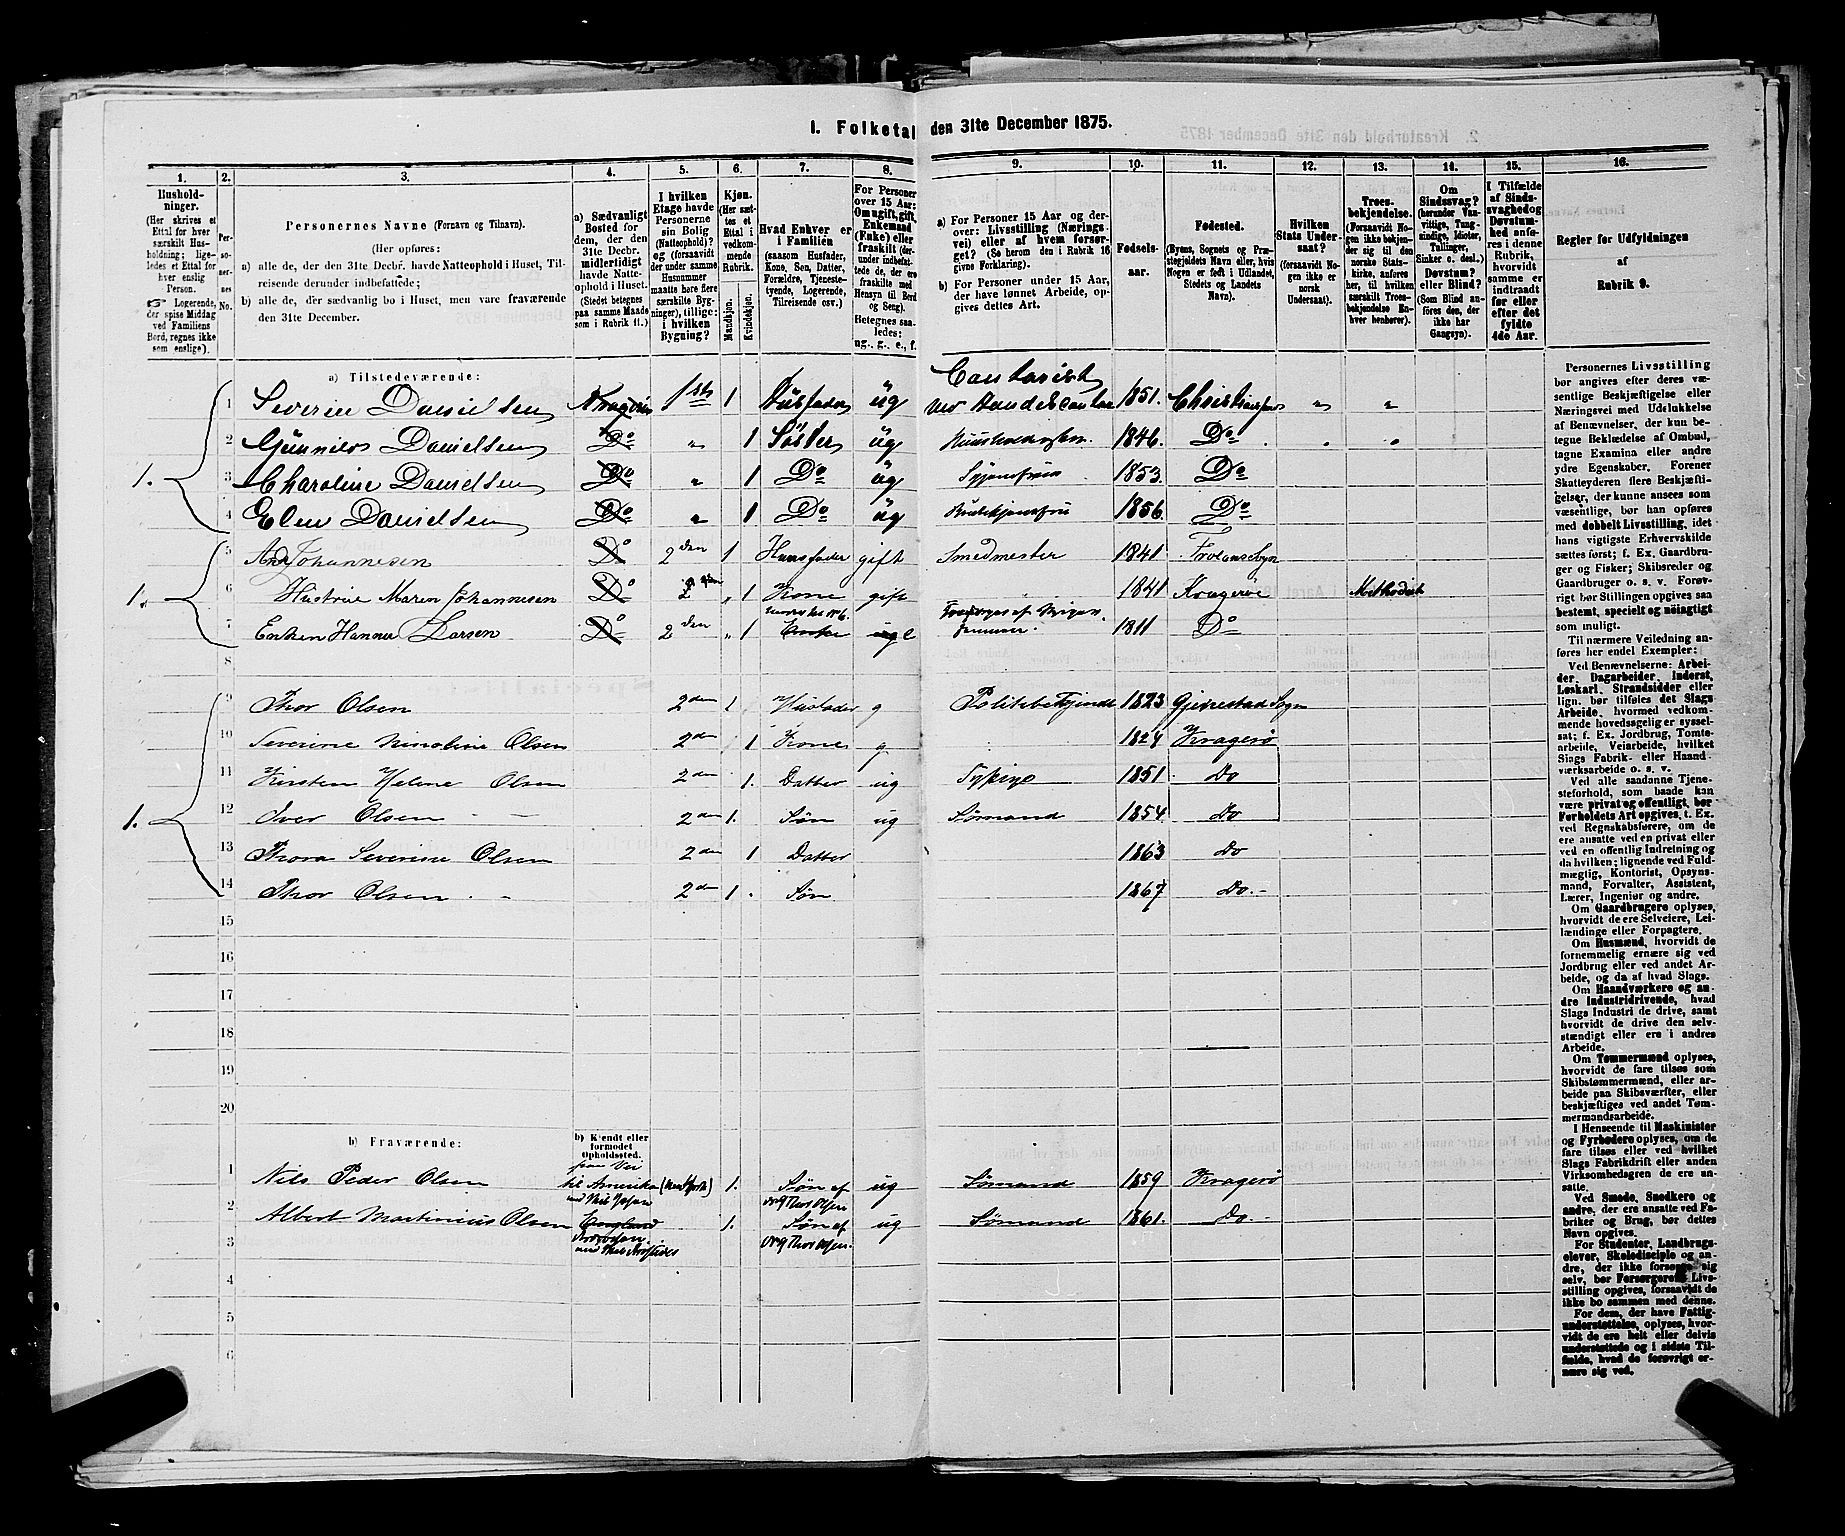 1. Folketal den 31te December 1875.
1. 2. 3. 4. 5. 6. 7. 8. 9. 10. 11. 12. 13. 14. 15. 16.
Husholdninger.
(Her skrives et
Ettal for hver
særskilt Husholdning;
ligeledes et Ettal for
hver enslig
Person.
Logerende,
der spise Middag
ved Familiens
Bord, regnes ikke
som enslige).
Personernes No.
Personernes Navne (Fornavn og Tilnavn).
(Her opføres:
a) alle de, der den 31te Decbr. havde Natteophold i Huset, Tilreisende
derunder indbefattede;
b) alle de, der sædvanlig bo i Huset, men vare fraværende
den 31te December.
a) Sædvanligt
Bosted for
dem, der den
31te Decbr.
midlertidigt
havde Natteophold
i Huset.
(Stedet betegnes
paa samme Maade
som i Rubrik 11.)
I hvilken
Etage havde
Personerne
sin Bolig
(Natteophold)?
og (forsaavidt
der under samme
Husnummer
maatte høre flere
særskilte Bygninger),
tillige:
i hvilken
Bygning?
Kjøn.
(Her sættes
et
Ettal i
vedkommende
Rubrik.
Mandkjøn.
Kvindekjøn.
Hvad Enhver er
i Familien
(saasom Husfader,
Kone, Søn, Datter,
Forældre, Tjenestetyende,
Logerende,
Tilreisende osv.)
For
Personer
over 15 Aar:
Om ugift, gift,
Enkemand
(Enke) eller
fraskilt (derunder
indbefattede
de, der ere
fraskilte med
Hensyn til Bord
og Seng).
Betegnes saaledes:
ug., g., e., f.
a) For Personer 15 Aar og derover:
Livsstilling (Næringsvei)
eller af hvem forsørget?
(Se herom den i Rubrik 16
givne Forklaring).
b) For Personer under 15 Aar,
der have lønnet Arbeide, opgives
dettes Art.
Fødselsaar.
Fødested.
(Byens, Sognets og Præstegjeldets
Navn eller, hvis
Nogen er født i Udlandet,
Stedets og Landets
Navn).
Hvilken
Stats Undersaat?
(forsaavidt Nogen
ikke er
norsk
Undersaat).
Troesbekjendelse.
(Forsaavidt Nogen
ikke bekjender
sig til den
norske Statskirke,
anføres
her, til hvilken
særskilt Troesbekjendelse
Enhver
henhører).
Om
Sindssvag?
(herunder Vanvittige,
Tungsindige,
Idioter,
Tullinger,
Sinker o. desl.)
Døvstum?
eller Blind?
(Som Blind anføres
den, der
ikke har
Gangsyn).
I Tilfælde
af Sindssvaghed
og
Døvstumhed
anføres
i denne
Rubrik,
hvorvidt
samme er
indtraadt
før eller
efter det
fyldte
4de Aar.
Regler for Udfyldningen
af
Rubrik 9.
a) Tilstedeværende:
1 Severin Danielsen Kragerø 1ste 1 Husfader ug Contorist 1851. Christiansand " "
2 Gunnild Danielsen Do " 1 Søster ug 1846. Do
3 Charoline Danielsen Do " 1 Do ug 1853. Do
1. 4 Elen Danielsen Do " 1 Do ug 1856. Do
5 Johannesen Do 2den 1 Huusfader gift Smedmester 1841
1. 6 Hustrue Maren Johannesen Do 2den " 1 Kone gift 1841 Kragerø Methodist
7 Enken Hanna Larsen Do 2den " 1 Enke e 1811 Do
8
9 Thor Olsen 2den 1 Husfader g Politibetjendt 1823 Gjerrestad Sogn
10 Severine Nicoline Olsen 2den 1 Kone g 1824 Kragerø
11 Kirsten Helene Olsen 2den 1. Datter ug Sypige 1851. Do
1. 12 Iver Olsen 2den 1. Søn ug Sømand 1854. Do
13 Thora Severine Olsen 2den 1 Datter 1863 Do
14 Thor Olsen 2den 1. Søn 1867. Do.
15
16
17
18
19
20
b) Fraværende:
b) Kjendt eller
formodet
Opholdssted.
1 Nils Peder Olsen paa Vei til Amerika 1. Søn af No 9 Thor Olsen ug Sømand 1859 Kragerø
2 Albert Martinius Olsen England 1. Søn af No 9 Thor Olsen ug Sømand 1861. Do.
3
4
5
6
Personernes Livsstilling
bør angives efter deres væsentlige
Beskjæftigelse eller
Næringsvei med Udelukkelse
af Benævnelser, der kun betegne
Beklædelse af Ombud,
tagne Examina eller andre
ydre Egenskaber. Forener
Skatteyderen flere Beskjæftigelser,
der kunne ansees som
væsentlige, bør han opføres
med dobbelt Livsstilling, idet
hans vigtigste Erhvervskilde
sættes først; f. Ex. Gaardbruger
og Fisker; Skibsreder og
Gaardbruger o. s. v. Forøvrigt
bør Stillingen opgives saa
bestemt, specielt og nøiagtigt
som muligt.
Til nærmere Veiledning anføres
her endel Exempler:
Ved Benævnelserne: Arbeider,
Dagarbeider, Inderst,
Løskarl, Strandsidder eller
lign. bør tilføies det Slags
Arbeide, hvormed vedkommende
hovedsagelig er sysselsat;
f. Ex. Jordbrug, Tomtearbeide,
Veiarbeide, hvilket
Slags Fabrik- eller Haandværksarbeide
o. s. v.
Ved alle saadanne Tjenesteforhold,
som baade kan
være privat og offentligt, bør
Forholdets Art opgives, t. Ex.
ved Regnskabsførere, om de
ere ansatte ved en privat eller
ved en offentlig Indretning og
da hvilken; lignende ved Fuldmægtig,
Kontorist, Opsynsmand,
Forvalter, Assistent,
Lærer, Ingeniør og andre.
Om Gaardbrugere oplyses,
hvorvidt de ere Selveiere, Leilændinge
eller Forpagtere.
Om Husmænd, hvorvidt de
fornemmelig ernære sig ved
Jordbrug eller ved andet Arbeide,
og da af hvad Slags.
Om Haandværkere og andre
Industridrivende, hvad
Slags Industri de drive, samt
hvorvidt de drive den selvstændigt
eller ere i andres
Arbeide.
Om Tømmermænd oplyses,
hvorvidt de fare tilsøs som
Skibstømmermænd, eller arbeide
paa Skibsværfter, eller
beskjæftiges ved andet Tømmermandsarbeide.
I Henseende til Maskinister
og Fyrbødere oplyses, om de
fare tilsøs eller ved hvilket
Slags Fabrikdrift eller anden
Virksomhedsgren de ere ansatte.
Ved Smede, Snedkere og
andre, der ere ansatte ved Fabriker
og Brug, bør dettes
Navn opgives.
For Studenter, Landbrugselever,
Skoledisciple og andre,
der ikke forsørge sig
selv, bør Forsørgerens Livsstilling
opgives, forsaavidt de
ikke bo sammen med denne.
For dem, der have Fattigunderstøttelse,
oplyses, hvorvidt
de ere helt eller delvis
understøttede og i sidste Tilfælde,
hvad de forøvrigt ernære
sig ved.